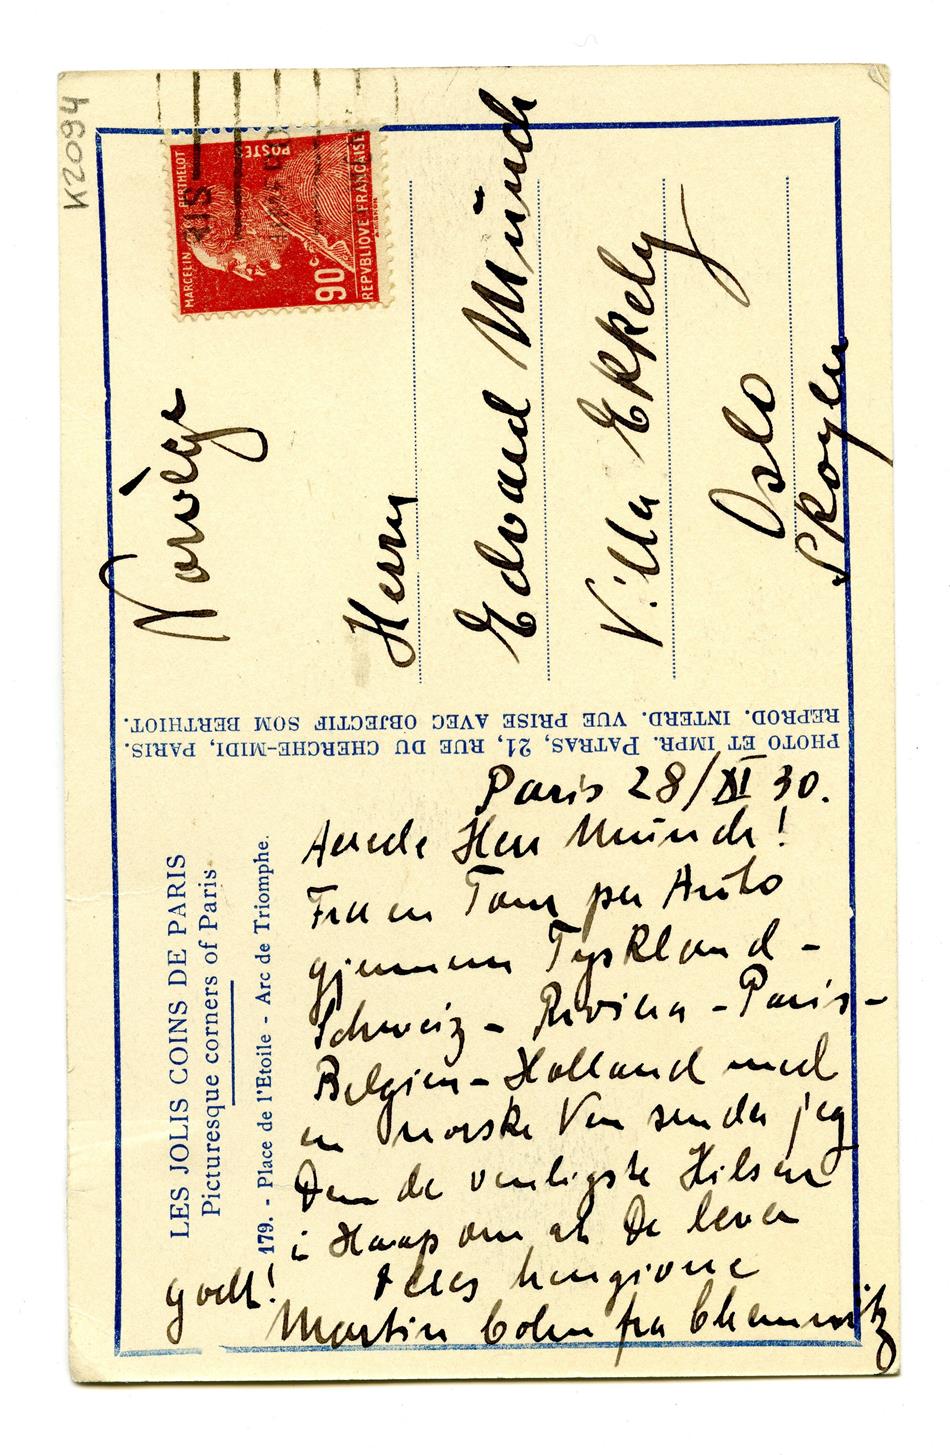 K2094
MARCELIN BERTHELOT
POSTES
90c
REPVBLIQVE FRANÇAISE
RIS
Norvège
Herrn
Edvard Münch
Villa Ekkely
Oslo
Skoyen
PHOTO ET IMPR. PATRAS, 21, RUE DU CHERCHE-MIDI, PARIS.
REPROD. INTERD. VUE PRISE AVEC OBJECTIF SOM BERTHIOT.
LES JOLIS COINS DE PARIS
Picturesque corners of Paris
179. - Place de l'Etoile - Arc de Triomphe.
Paris 28/XI 30.
Aerede Herr Münch!
Fra en Tour per Auto
gjennem Tyskland -
Schweiz - Riviera - Paris -
Belgien - Holland med
en norske Ven sender jeg
Dem de venligste Hilsen
i Haap om at De lever
godt! Deres hengivne
Martin Cohn fra Chemnitz